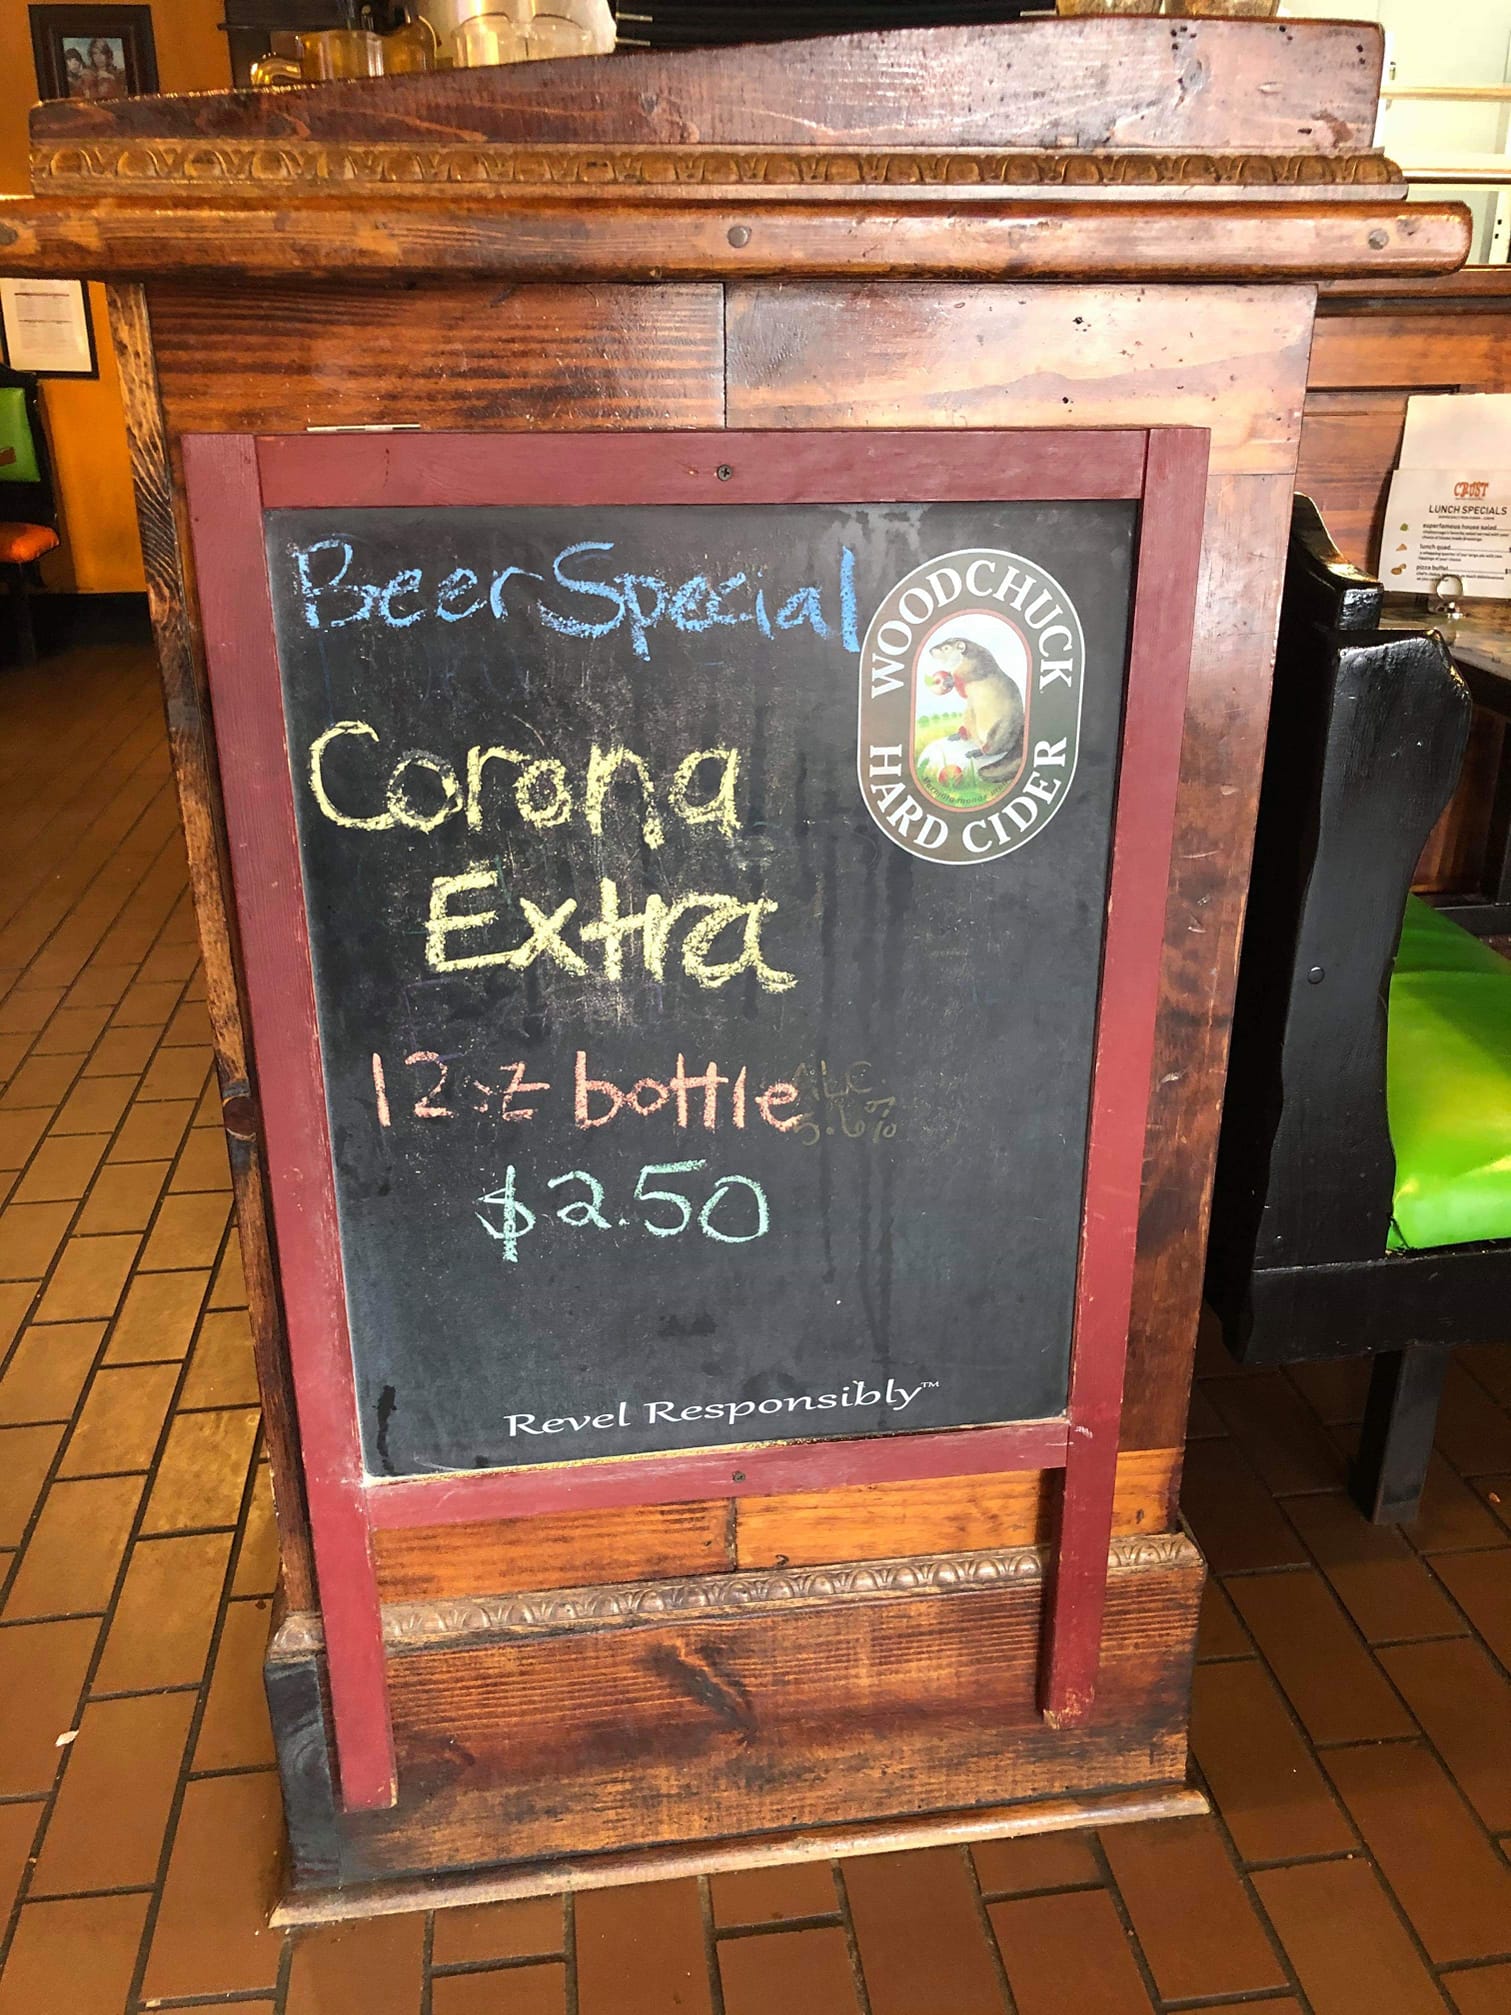 Beer Special
WOODCHUCK
HARD CIDER
Corona
Extra
12 oz bottle
ALC.
5.6%
$2.50
Revel Responsibly™
CRUST
LUNCH SPECIALS
superfamous house salad
lunch quad
pizza buffet